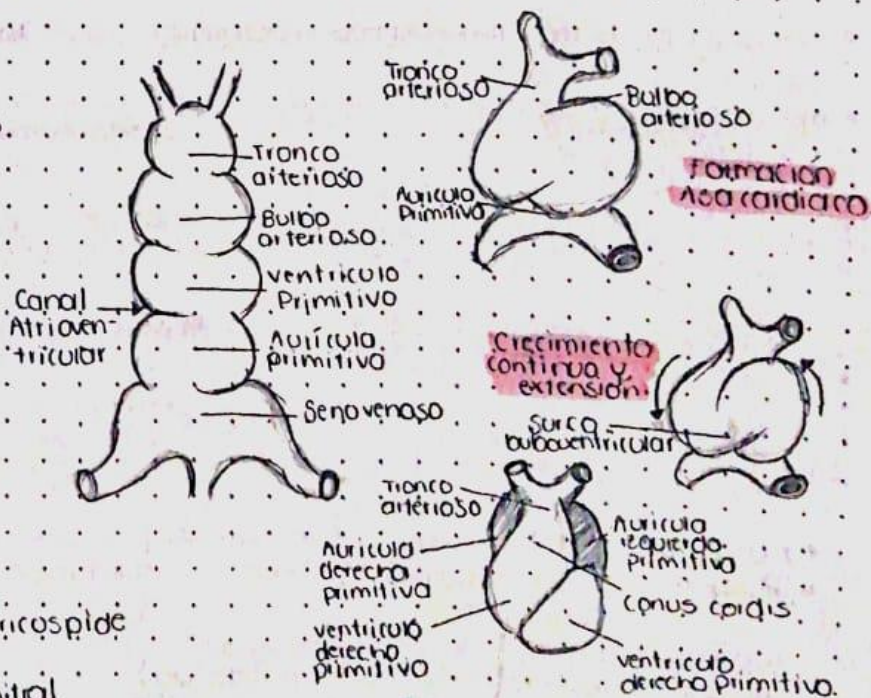 Tronco
arterioso
Bulbo
arterioso
ventriculo
Primitivo
Canal
Atrioven-
tricular
Aurícula
primitiva
Seno venoso
Tronco
arterioso
Bulbo
arterioso
Aurícula
Primitiva
Formación
Asa cardiaca
Crecimiento
continuo y
extensión
Surco
buboventricular
Tronco
arterioso
Aurícula
derecha
primitiva
ventriculo
derecho
primitivo
Aurícula
izquierda
primitiva
Conus cordis
ventriculo
derecho primitivo.
ricospide
itral